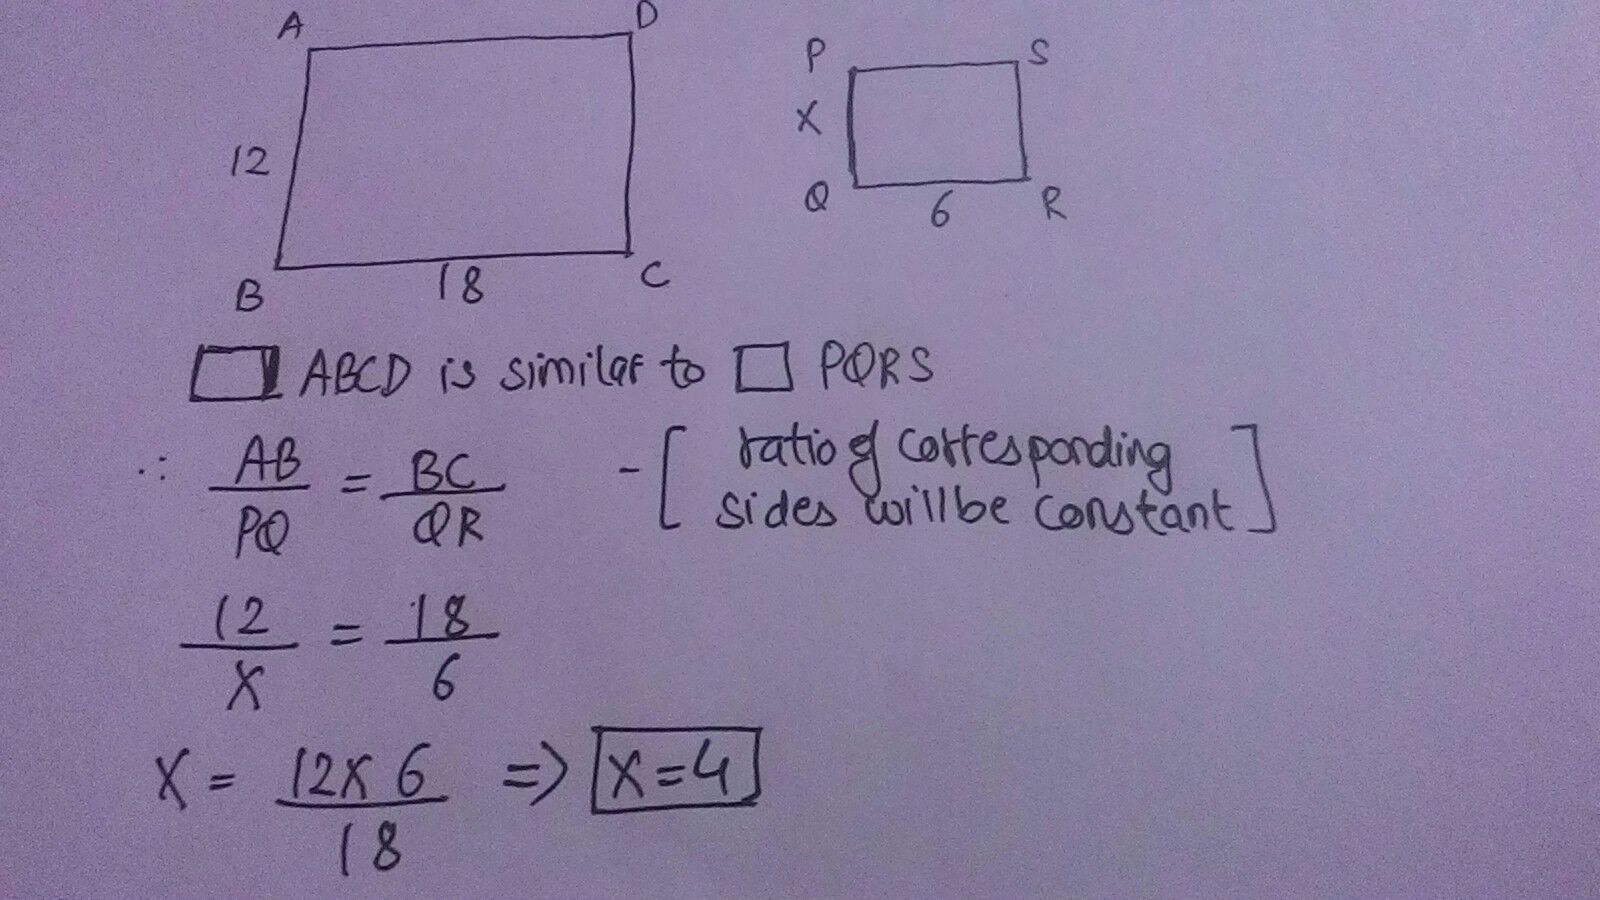 A D
P S
12 X
Q 6 R
B 18 C
ABCD is similar to PQRS
∴ AB/PQ = BC/QR - [ratio of corresponding
sides will be constant]
12/X = 18/6
X = 12 x 6/18 => X = 4